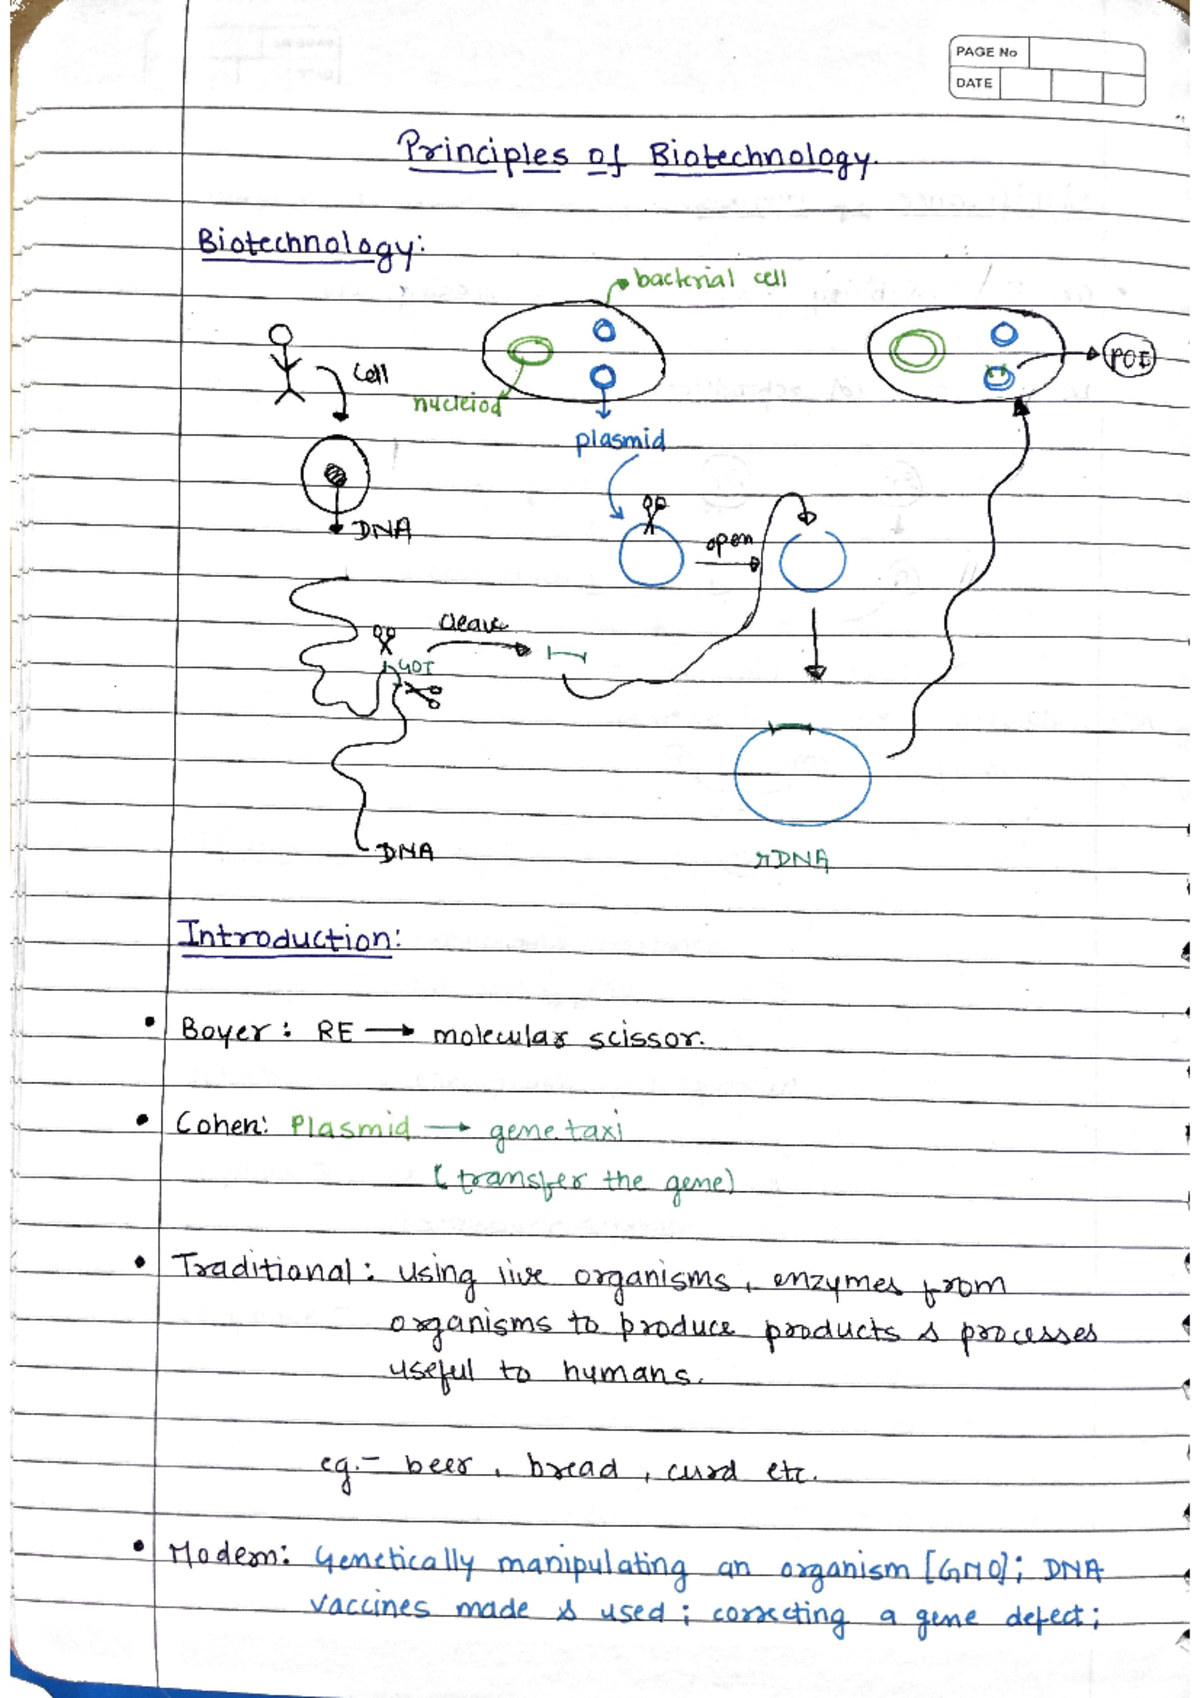 PAGE No
DATE
Principles of Biotechnology.
Biotechnology:
bacterial cell
cell
nucleiod
POI
plasmid
DNA
open
cleave
GOI
DNA
rDNA
Introduction:
• Boyer: RE → molecular scissor.
• Cohen: Plasmid → gene taxi
(transfer the gene)
• Traditional: using live organisms, enzymes from
organisms to produce products & processes
useful to humans.
eg.- beer, bread, curd etc.
• Modern: Genetically manipulating an organism [GMO]; DNA
vaccines made & used; correcting a gene defect;